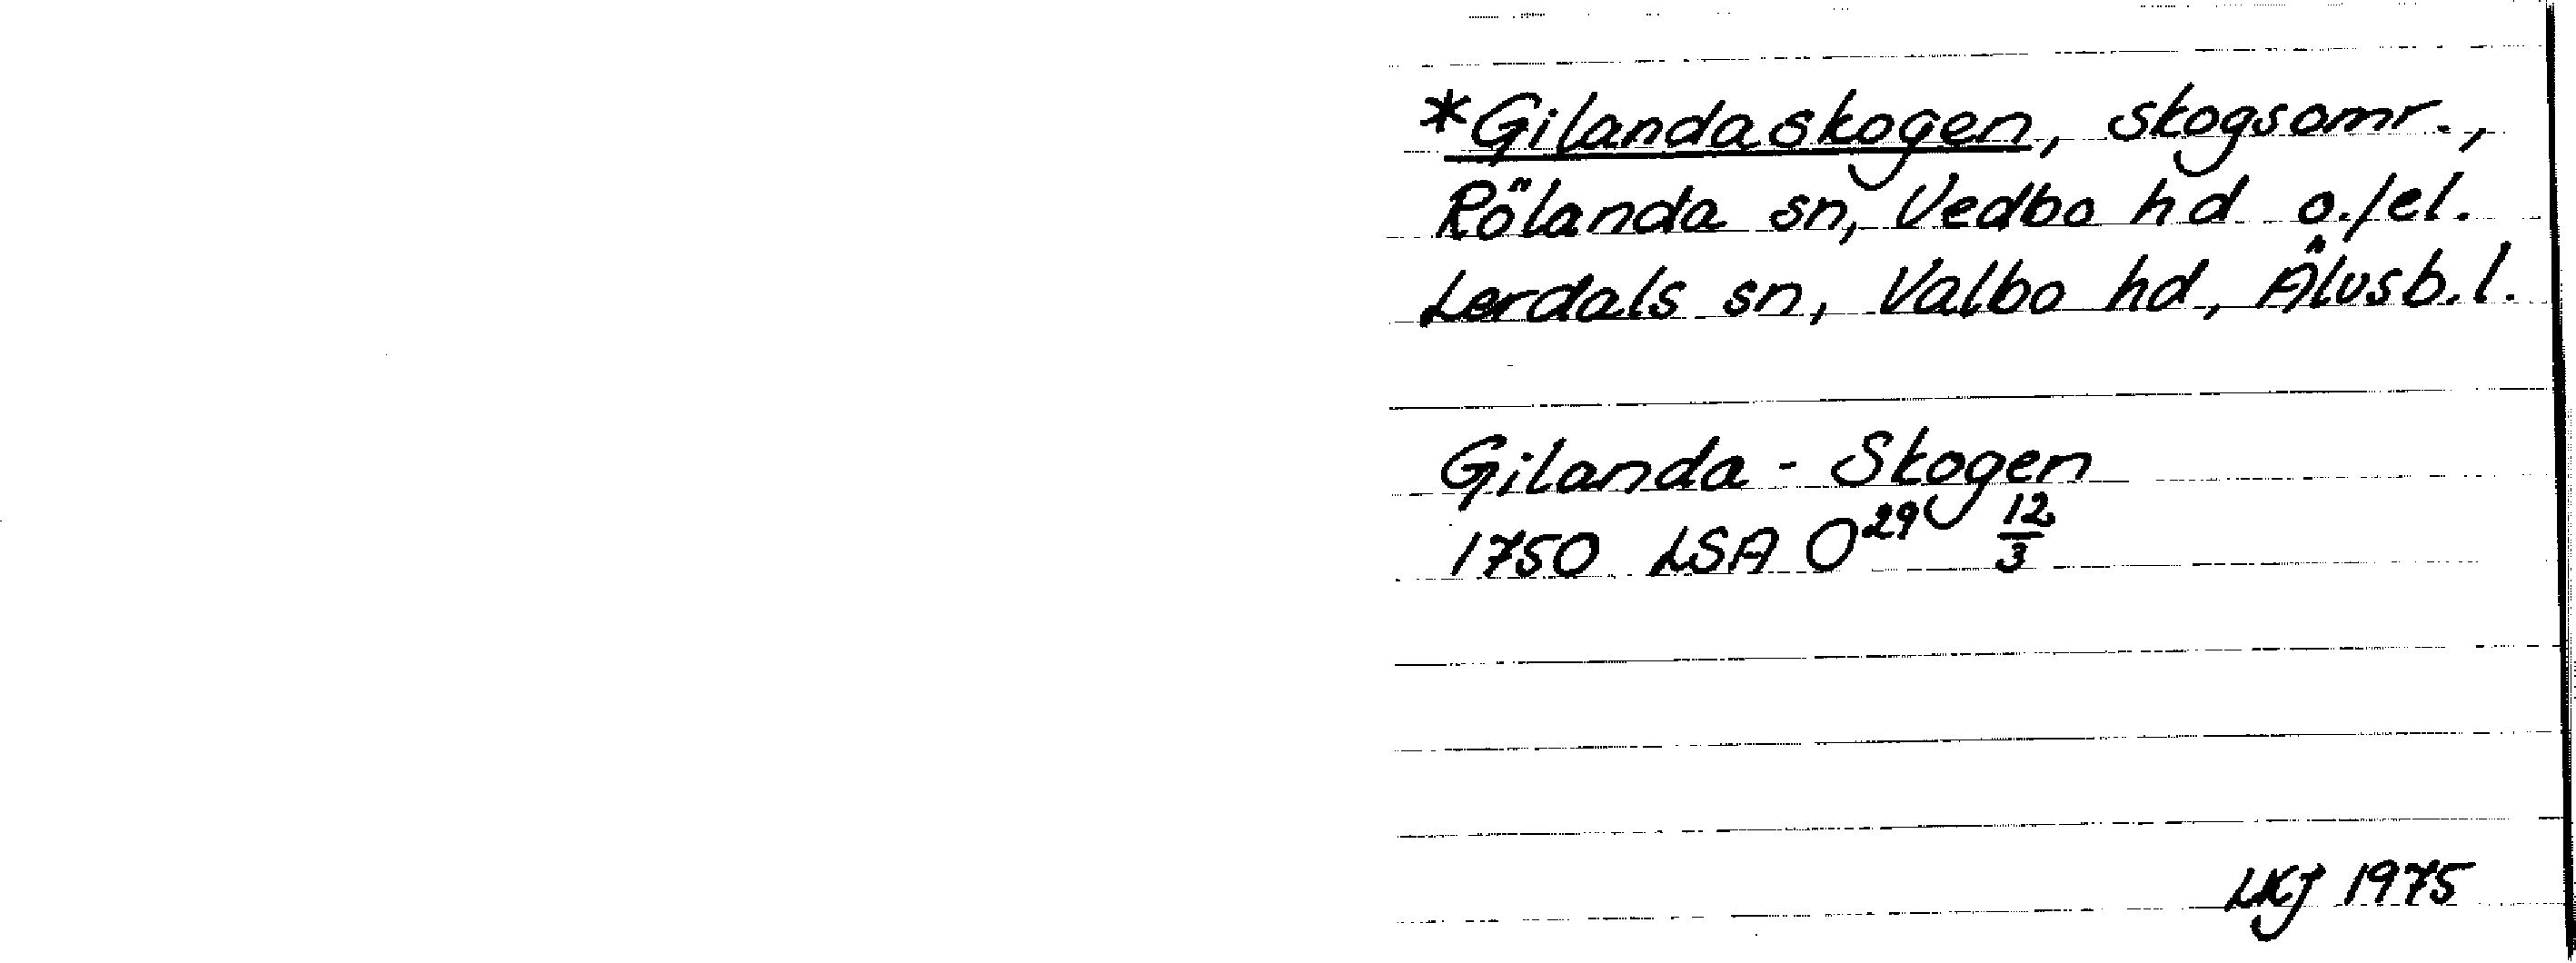 *Gilandaskogen, skogsomr.,
Rölanda sn, Vedbo hd o./el.
Lerdals sn, Valbo hd, Älvsb.l.
Gilanda - Skogen
1750 LSA O²⁹ 12/3
LKJ 1975